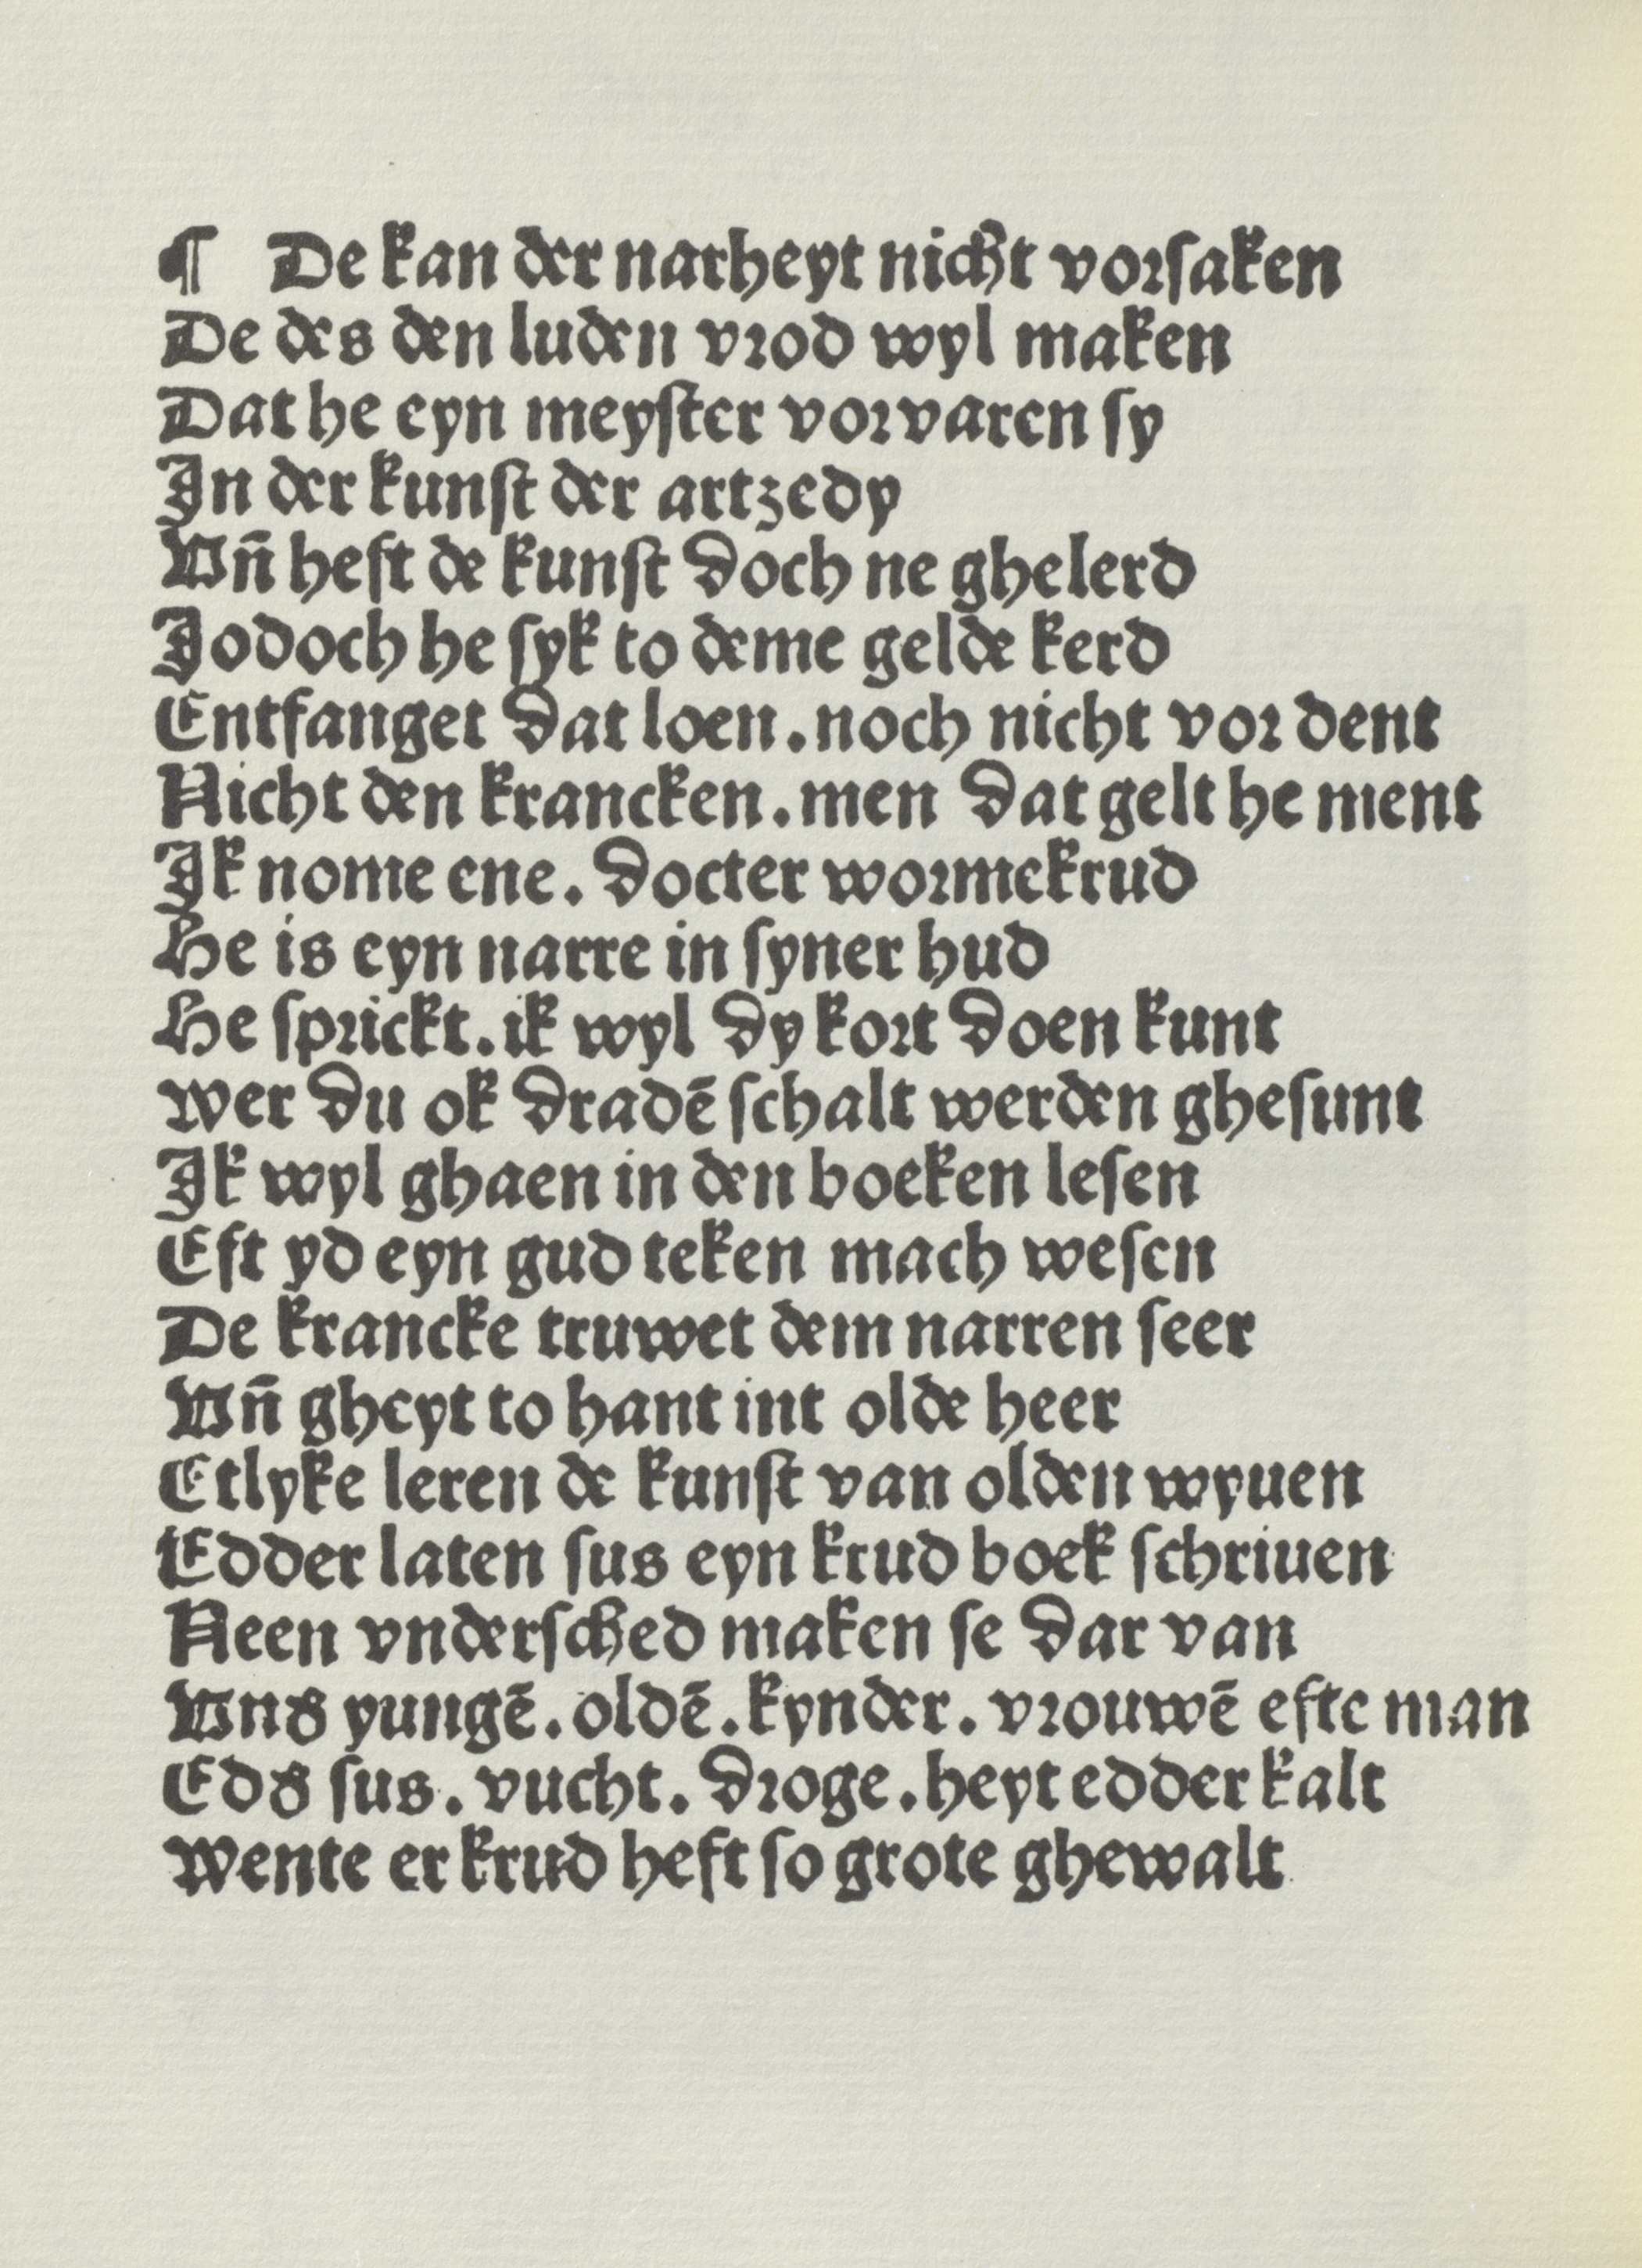 ¶ De kan der narheyt nicht vorsaken
De des den luden vrod wyl maken
Dat he eyn meyster vorvaren sy
In der kunst der artzedy
Vn̄ heft de kunst doch ne ghelerd
Jodoch he syk to deme gelde kerd
Entfanget dat loen . noch nicht vor dent
Nicht den krancken . men dat gelt he ment
Ik nome ene . docter wormekrud
He is eyn narre in syner hud
He sprickt . ik wyl dy kort doen kunt
wer du ok dradē schalt werden ghesunt
Ik wyl ghaen in den boeken lesen
Eft yd eyn gud teken mach wesen
De krancke truwet dem narren seer
Vn̄ gheyt to hant int olde heer
Etlyke leren de kunst van olden wyuen
Edder laten sus eyn krud boek schriuen
Neen vndersched maken se dar van
Vnd' yungē . oldē . kynder . vrouwē efte man
Edd' sus . vucht . droge . heyt edder kalt
Wente er krud heft so grote ghewalt